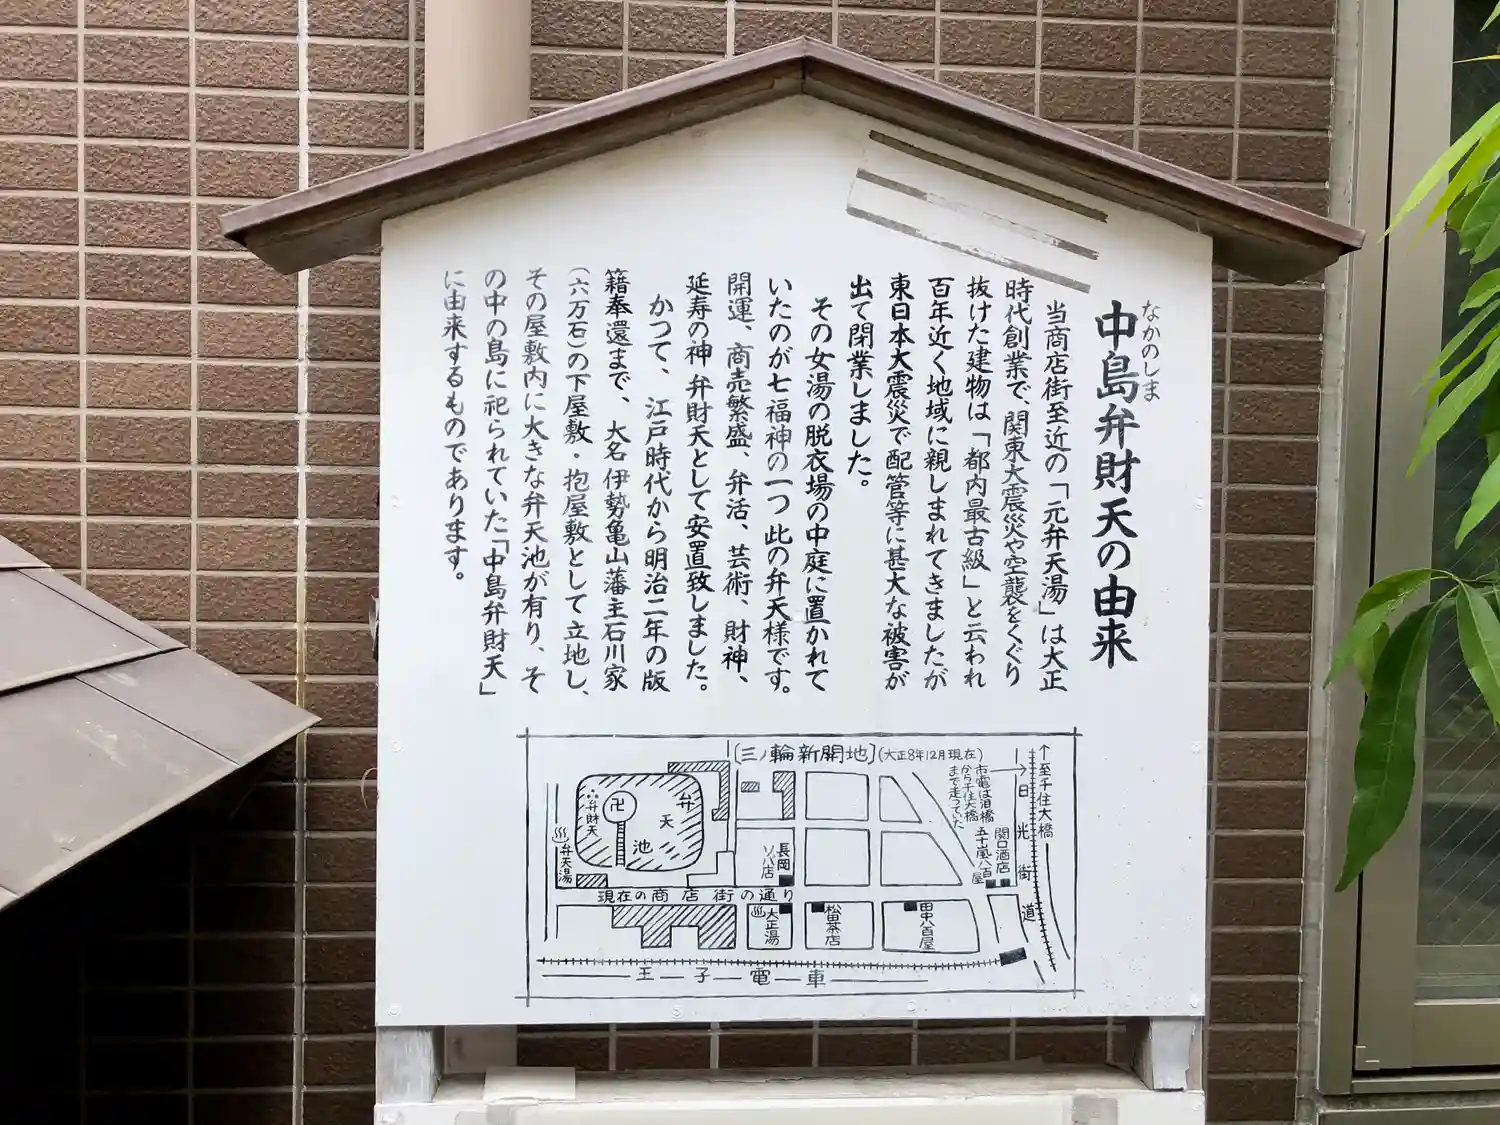 なかのしま
中島弁財天の由来
当商店街至近の「元弁天湯」は大正
時代創業で、関東大震災や空襲をくぐり
抜けた建物は「都内最古級」と云われ
百年近く地域に親しまれてきましたが
東日本大震災で配管等に甚大な被害が
出て閉業しました。
その女湯の脱衣場の中庭に置かれて
いたのが七福神の一つ 此の弁天様です。
開運、商売繁盛、弁活、芸術、財神、
延寿の神 弁財天として安置致しました。
かつて、江戸時代から明治二年の版
籍奉還まで、大名 伊勢亀山藩主石川家
(六万石)の下屋敷・抱屋敷として立地し、
その屋敷内に大きな弁天池が有り、そ
の中の島に祀られていた「中島弁財天」
に由来するものであります。
[三ノ輪新開地](大正8年12月現在)
↑至千住大橋
日光街道
市電は泪橋
から千住大橋
まで走っていた
関口酒店
五十嵐八百屋
弁天池
卍
弁財天
♨弁天湯
長岡
ソバ店
現在の商店街の通り
♨大正湯
松田茶店
田中八百屋
王子電車